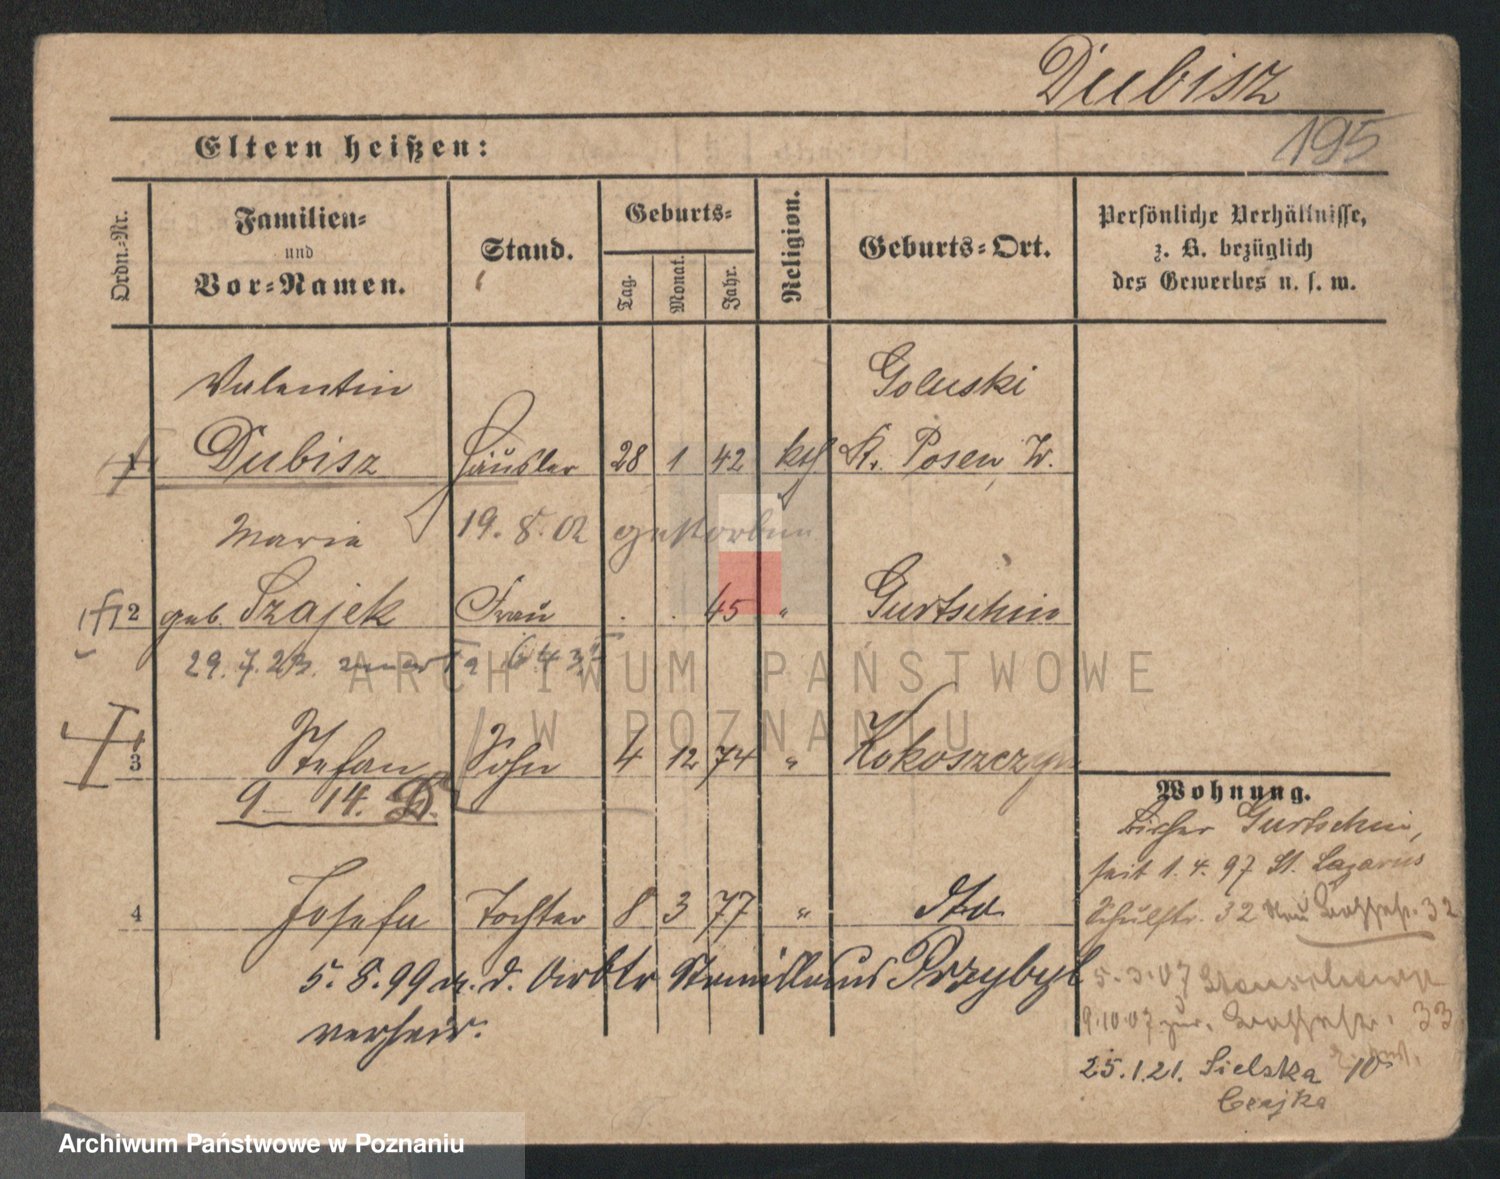 Dubisz
Eltern heißen:
195
Ordn.-Nr.
Familien-
und
Vor-Namen.
Stand.
Geburts-
Tag.
Monat.
Jahr.
Religion.
Geburts-Ort.
Persönliche Verhältnisse,
z. B. bezüglich
des Gewerbes u. s. w.
Valentin Goluski
Dubisz Häusler 28 1 42 kth Kr. Posen W.
Maria 19. 8. 02 gestorben
2 geb. Szajek Frau 45 " Gurtschin
29. 7. 23.
ARCHIWUM PAŃSTWOWE
W POZNANIU
3 Stefan Sohn 4 12 74 " Kokoszczyn
9 – 14. D.
4 Josefa Tochter 8 3 77 " dto
5. 8. 99 m. d. Arbtr Stanislaus Przybyl
verheir.
Wohnung.
Bisher Gurtschin,
seit 1. 4. 97 St. Lazarus
Schulstr. 32 32
5. 3. 07
9. 10. 07 zur. 33
25. 1. 21. Sielska 10
Czajka
Archiwum Państwowe w Poznaniu